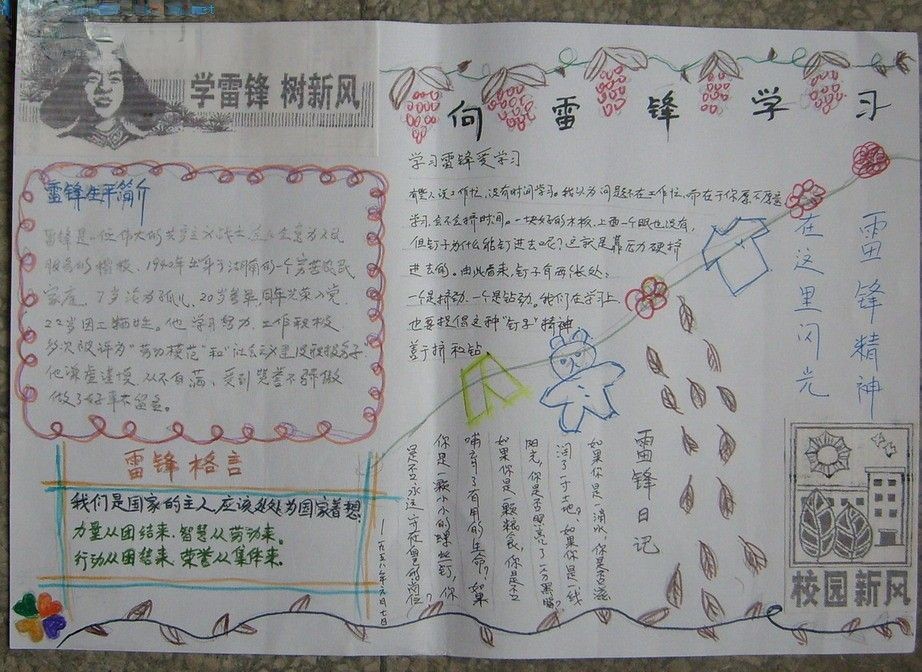 学雷锋 树新风
向雷锋学习
雷锋生平简介
雷锋是一位伟大的共产主义战士,全心全意为人民
服务的楷模,1940年出身于湖南的一个贫苦农民
家庭,7岁沦为孤儿,20岁参军,同年光荣入党,
22岁因工牺牲。他学习努力,工作积极
多次被评为“劳动模范”和“社会主义建设积极分子”
他谦虚谨慎,从不自满,受到赞誉不骄傲
做了好事不留名。
学习雷锋爱学习
有些人说工作忙,没有时间学习。我认为问题不在工作忙,而在于你愿不愿意
学习,会不会挤时间。一块好好的木板,上面一个眼也没有,
但钉子为什么能钉进去呢?这就是靠压力硬挤
进去的。由此看来,钉子有两个长处:
一个是挤劲,一个是钻劲。我们在学习上,
也要提倡这种“钉子”精神
善于挤和钻。
雷锋精神
在这里闪光
雷锋格言
我们是国家的主人,应该处处为国家着想。
力量从团结来,智慧从劳动来。
行动从团结来,荣誉从集体来。
雷锋日记
如果你是一滴水,你是否滋
润了一寸土地?如果你是一线
阳光,你是否照亮了一分黑暗?
如果你是一颗粮食,你是否
哺育了有用的生命?如果
你是一颗小小的螺丝钉,你
是否永远守在你的岗位?
一九五八年六月七日
校园新风